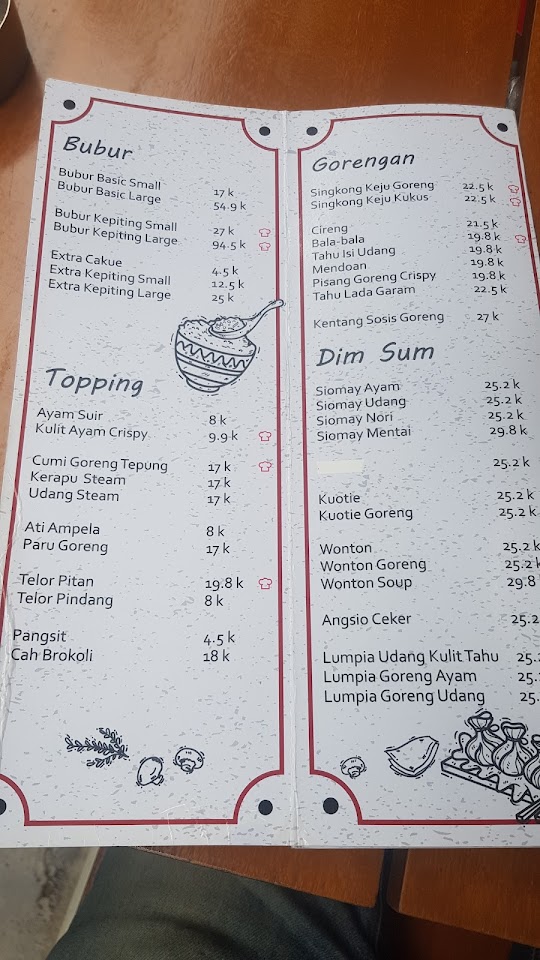 Bubur
Bubur Basic Small 17 k
Bubur Basic Large 54.9 k
Bubur Kepiting Small 27 k
Bubur Kepiting Large 94.5 k
Extra Cakue 4.5 k
Extra Kepiting Small 12.5 k
Extra Kepiting Large 25 k
Topping
Ayam Suir 8 k
Kulit Ayam Crispy 9.9 k
Cumi Goreng Tepung 17 k
Kerapu Steam 17 k
Udang Steam 17 k
Ati Ampela 8 k
Paru Goreng 17 k
Telor Pitan 19.8 k
Telor Pindang 8 k
Pangsit 4.5 k
Cah Brokoli 18 k
Gorengan
Singkong Keju Goreng 22.5 k
Singkong Keju Kukus 22.5 k
Cireng 21.5 k
Bala-bala 19.8 k
Tahu Isi Udang 19.8 k
Mendoan 19.8 k
Pisang Goreng Crispy 19.8 k
Tahu Lada Garam 22.5 k
Kentang Sosis Goreng 27 k
Dim Sum
Siomay Ayam 25.2 k
Siomay Udang 25.2 k
Siomay Nori 25.2 k
Siomay Mentai 29.8 k
25.2 k
Kuotie 25.2 k
Kuotie Goreng 25.2 k
Wonton 25.2 k
Wonton Goreng 25.2 k
Wonton Soup 29.8
Angsio Ceker 25.2
Lumpia Udang Kulit Tahu 25.
Lumpia Goreng Ayam 25.
Lumpia Goreng Udang 25.